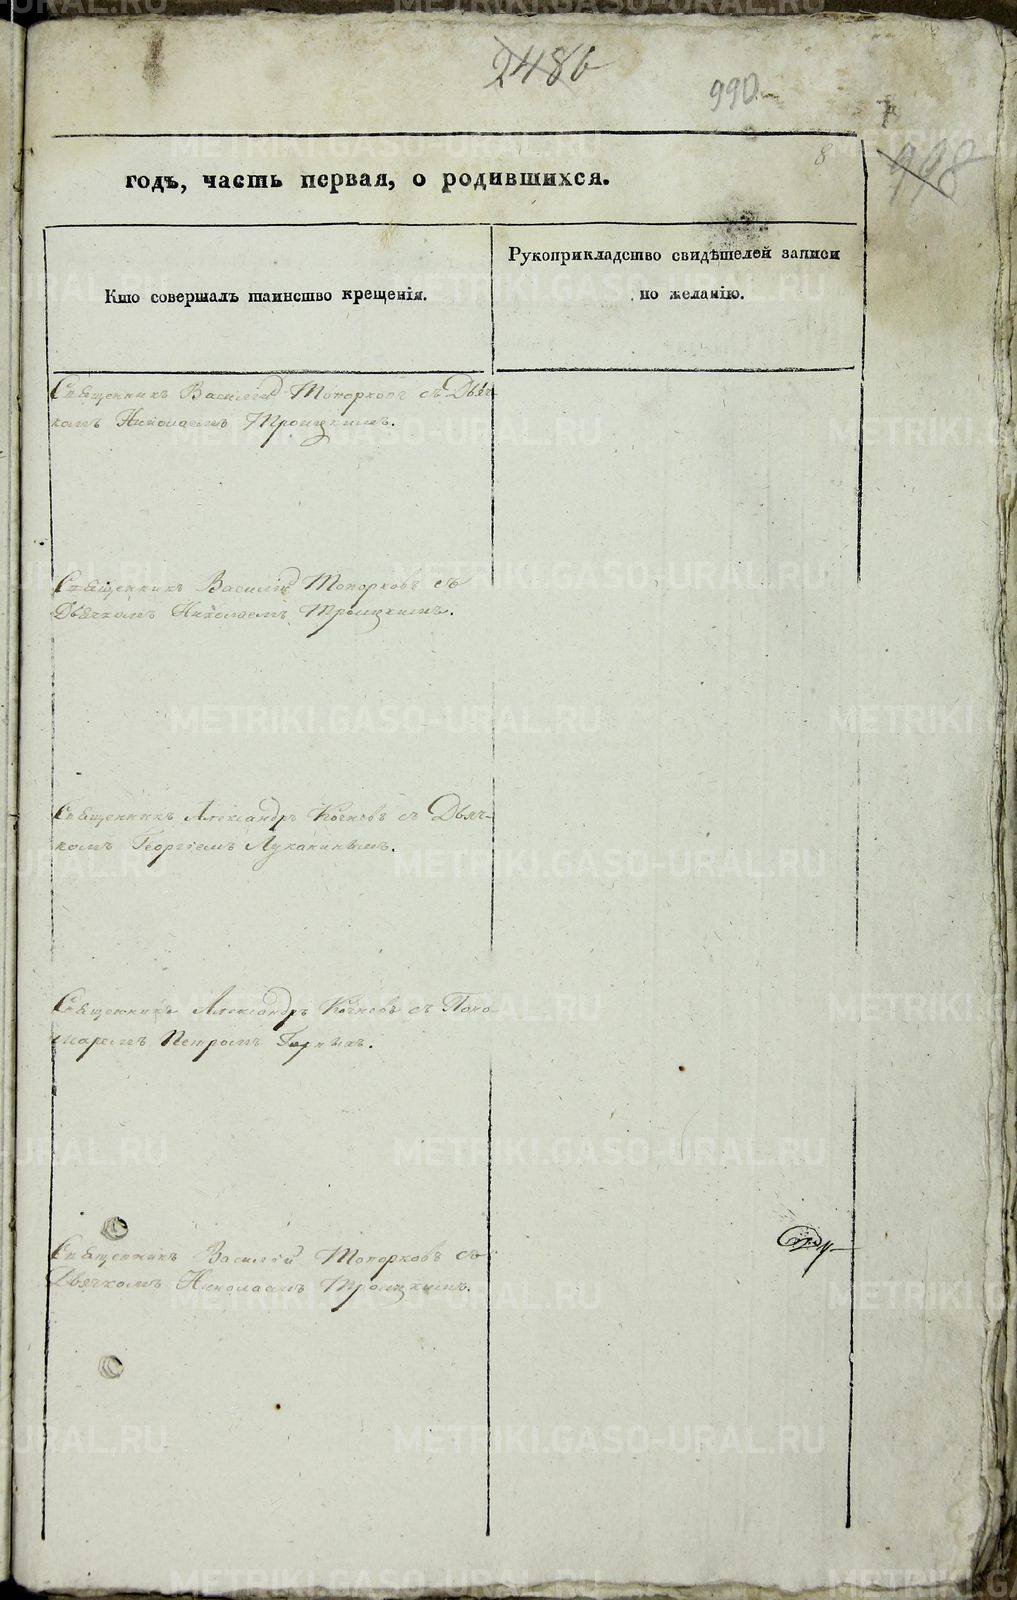 2486
990
998
8
годъ, часть первая, о родившихся.
Кто совершалъ таинство крещенія.
Рукоприкладство свидѣтелей записи
по желанію.
Священникъ Василій Топорковъ съ Дьяч-
комъ Николаемъ Троицкимъ.
Священникъ Василій Топорковъ съ
Дьячкомъ Николаемъ Троицкимъ.
Священникъ Александръ Кочневъ съ Дьяч-
комъ Георгіемъ Луканинымъ.
Священникъ Александръ Кочневъ съ Поно-
маремъ Петромъ
Священникъ Василій Топорковъ съ
Дьячкомъ Николаемъ Троицкимъ.
METRIKI.GASO-URAL.RU